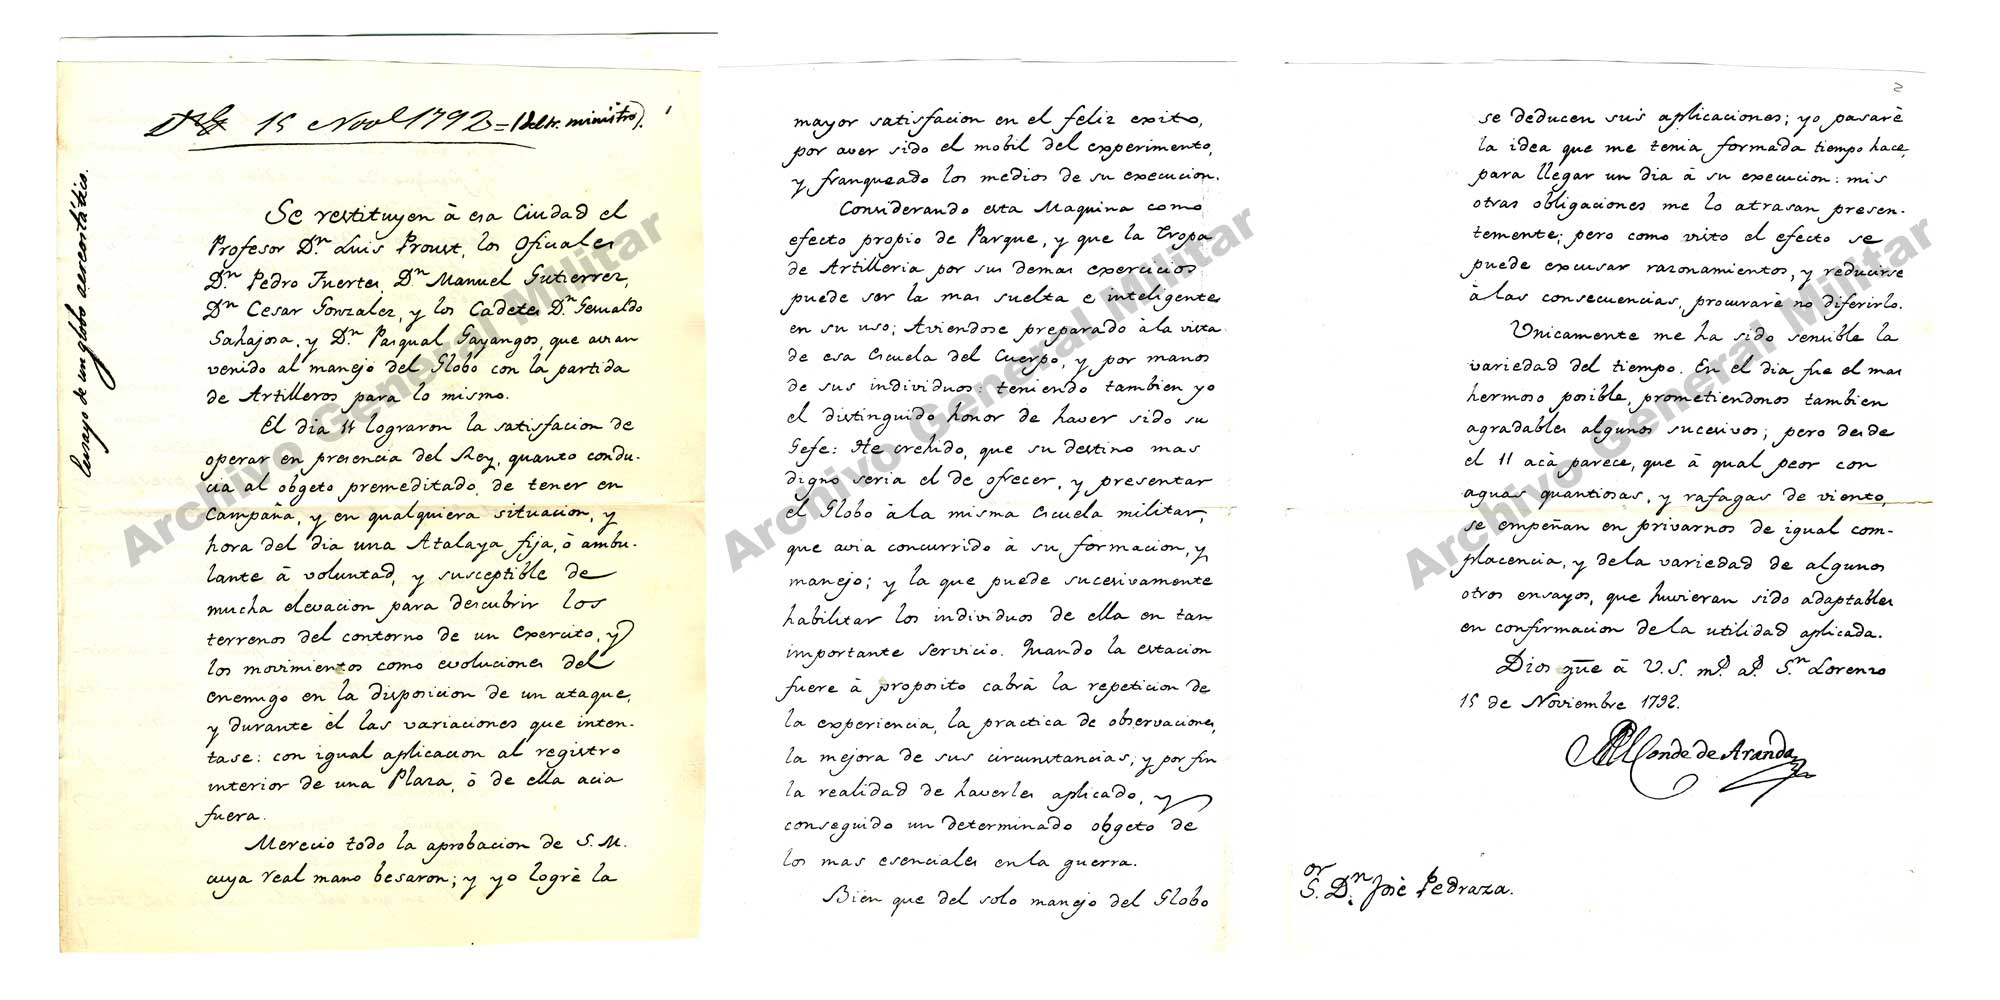 15 Nov 1792 = (del sr. ministro).
1
Ensayo de un globo aerostático.
Se restituyen à esa Ciudad el
Profesor Dn. Luis Proust, los Oficiales
Dn. Pedro Fuertes, Dn. Manuel Gutierrez,
Dn. Cesar Gonzalez, y los Cadetes Dn. Gesualdo
Sahajosa, y Dn. Pasqual Gayangos, que avian
venido al manejo del Globo con la partida
de Artilleros para lo mismo.
El dia 11 lograron la satisfacion de
operar en presencia del Rey, quanto condu-
cia al obgeto premeditado, de tener en
Campaña, y en qualquiera situacion, y
hora del dia una Atalaya fija, ò ambu-
lante à voluntad, y susceptible de
mucha elevacion para descubrir los
terrenos del contorno de un Exercito, y
los movimientos como evoluciones del
enemigo en la disposicion de un ataque,
y durante èl las variaciones que inten-
tase: con igual aplicacion al registro
interior de una Plaza, ò de ella acia
fuera.
Merecio todo la aprobacion de S. M.
cuya real mano besaron; y yo logrè la
mayor satisfacion en el feliz exito,
por aver sido el mobil del experimento,
y franqueado los medios de su execucion.
Considerando esta Maquina como
efecto propio de Parque, y que la Tropa
de Artilleria por sus demas exercicios
puede ser la mas suelta e inteligente
en su uso; Aviendose preparado à la vista
de esa Escuela del Cuerpo, y por manos
de sus individuos: teniendo tambien yo
el distinguido honor de haver sido su
Gefe: He crehido, que su destino mas
digno seria el de ofrecer, y presentar
el Globo à la misma Escuela militar,
que avia concurrido à su formacion, y
manejo; y la que puede sucesivamente
habilitar los individuos de ella en tan
importante servicio. Quando la estacion
fuere à proposito cabrà la repeticion de
la experiencia, la practica de observaciones,
la mejora de sus circunstancias; y por fin
la realidad de haverles aplicado, y
conseguido un determinado obgeto de
los mas esenciales en la guerra.
Bien que del solo manejo del Globo
2
se deducen sus aplicaciones; yo pasarè
la idea que me tenia formada tiempo hace,
para llegar un dia à su execucion: mis
otras obligaciones me lo atrasan presen-
temente; pero como visto el efecto se
puede excusar razonamientos, y reducirse
à las consecuencias, procurarè no diferirlo.
Unicamente me ha sido sensible la
variedad del tiempo. En el dia fue el mas
hermoso posible, prometiendonos tambien
agradables algunos sucesivos; pero desde
el 11 acà parece, que à qual peor con
aguas quantiosas, y rafagas de viento,
se empeñan en privarnos de igual com-
placencia, y de la variedad de algunos
otros ensayos, que huvieran sido adaptables
en confirmacion de la utilidad aplicada.
Dios gue à V. S. ms. as. Sn. Lorenzo
15 de Noviembre 1792.
El Conde de Aranda
Sor. Dn. Josè Pedraza.
Archivo General Militar
Archivo General Militar
Archivo General Militar